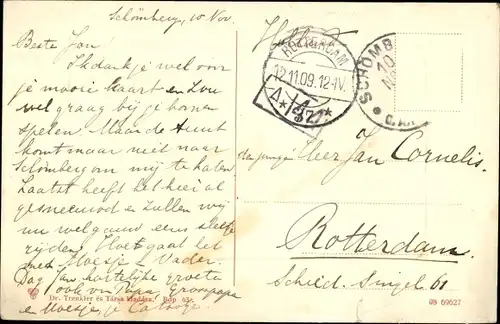 Schömberg, 10 Nov.
Beste Jan!
Ik dank je wel voor
je mooie kaart en zou
wel graag bij je komen
spelen. Maar de Aunt
komt maar niet naar
Schömberg om mij te halen
Laatst heeft het hier al
gesneeuwd en zullen wij
nu wel gauw eens slee
rijden. Hoe gaat het
met Moesje & Vader.
Dag Jan hartelijke groete
ook v. Papa Grompapa
en Moesje, je
Dr. Trenkler és Társa kiadása. Bdp 63.
Holland
ROTTERDAM
12.11.09.12-IV.
SCHÖMB
10
NOV
Den jongen Heer Jan Cornelis.
Rotterdam
Scheid. Singel 61
09 69527